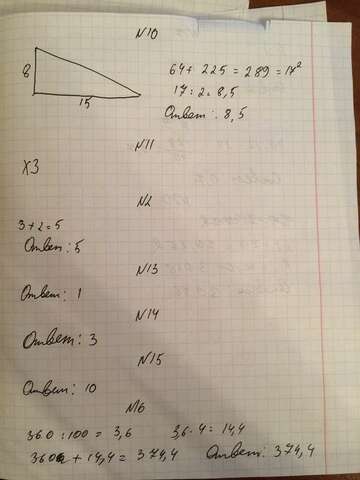 N10
8
15
64 + 225 = 289 = 17²
17 : 2 = 8,5
Ответ: 8,5
N11
X3
N2
3 + 2 = 5
Ответ: 5
N13
Ответ: 1
N14
Ответ: 3
N15
Ответ: 10
N16
360 : 100 = 3,6 3,6 · 4 = 14,4
360 + 14,4 = 374,4 Ответ: 374,4